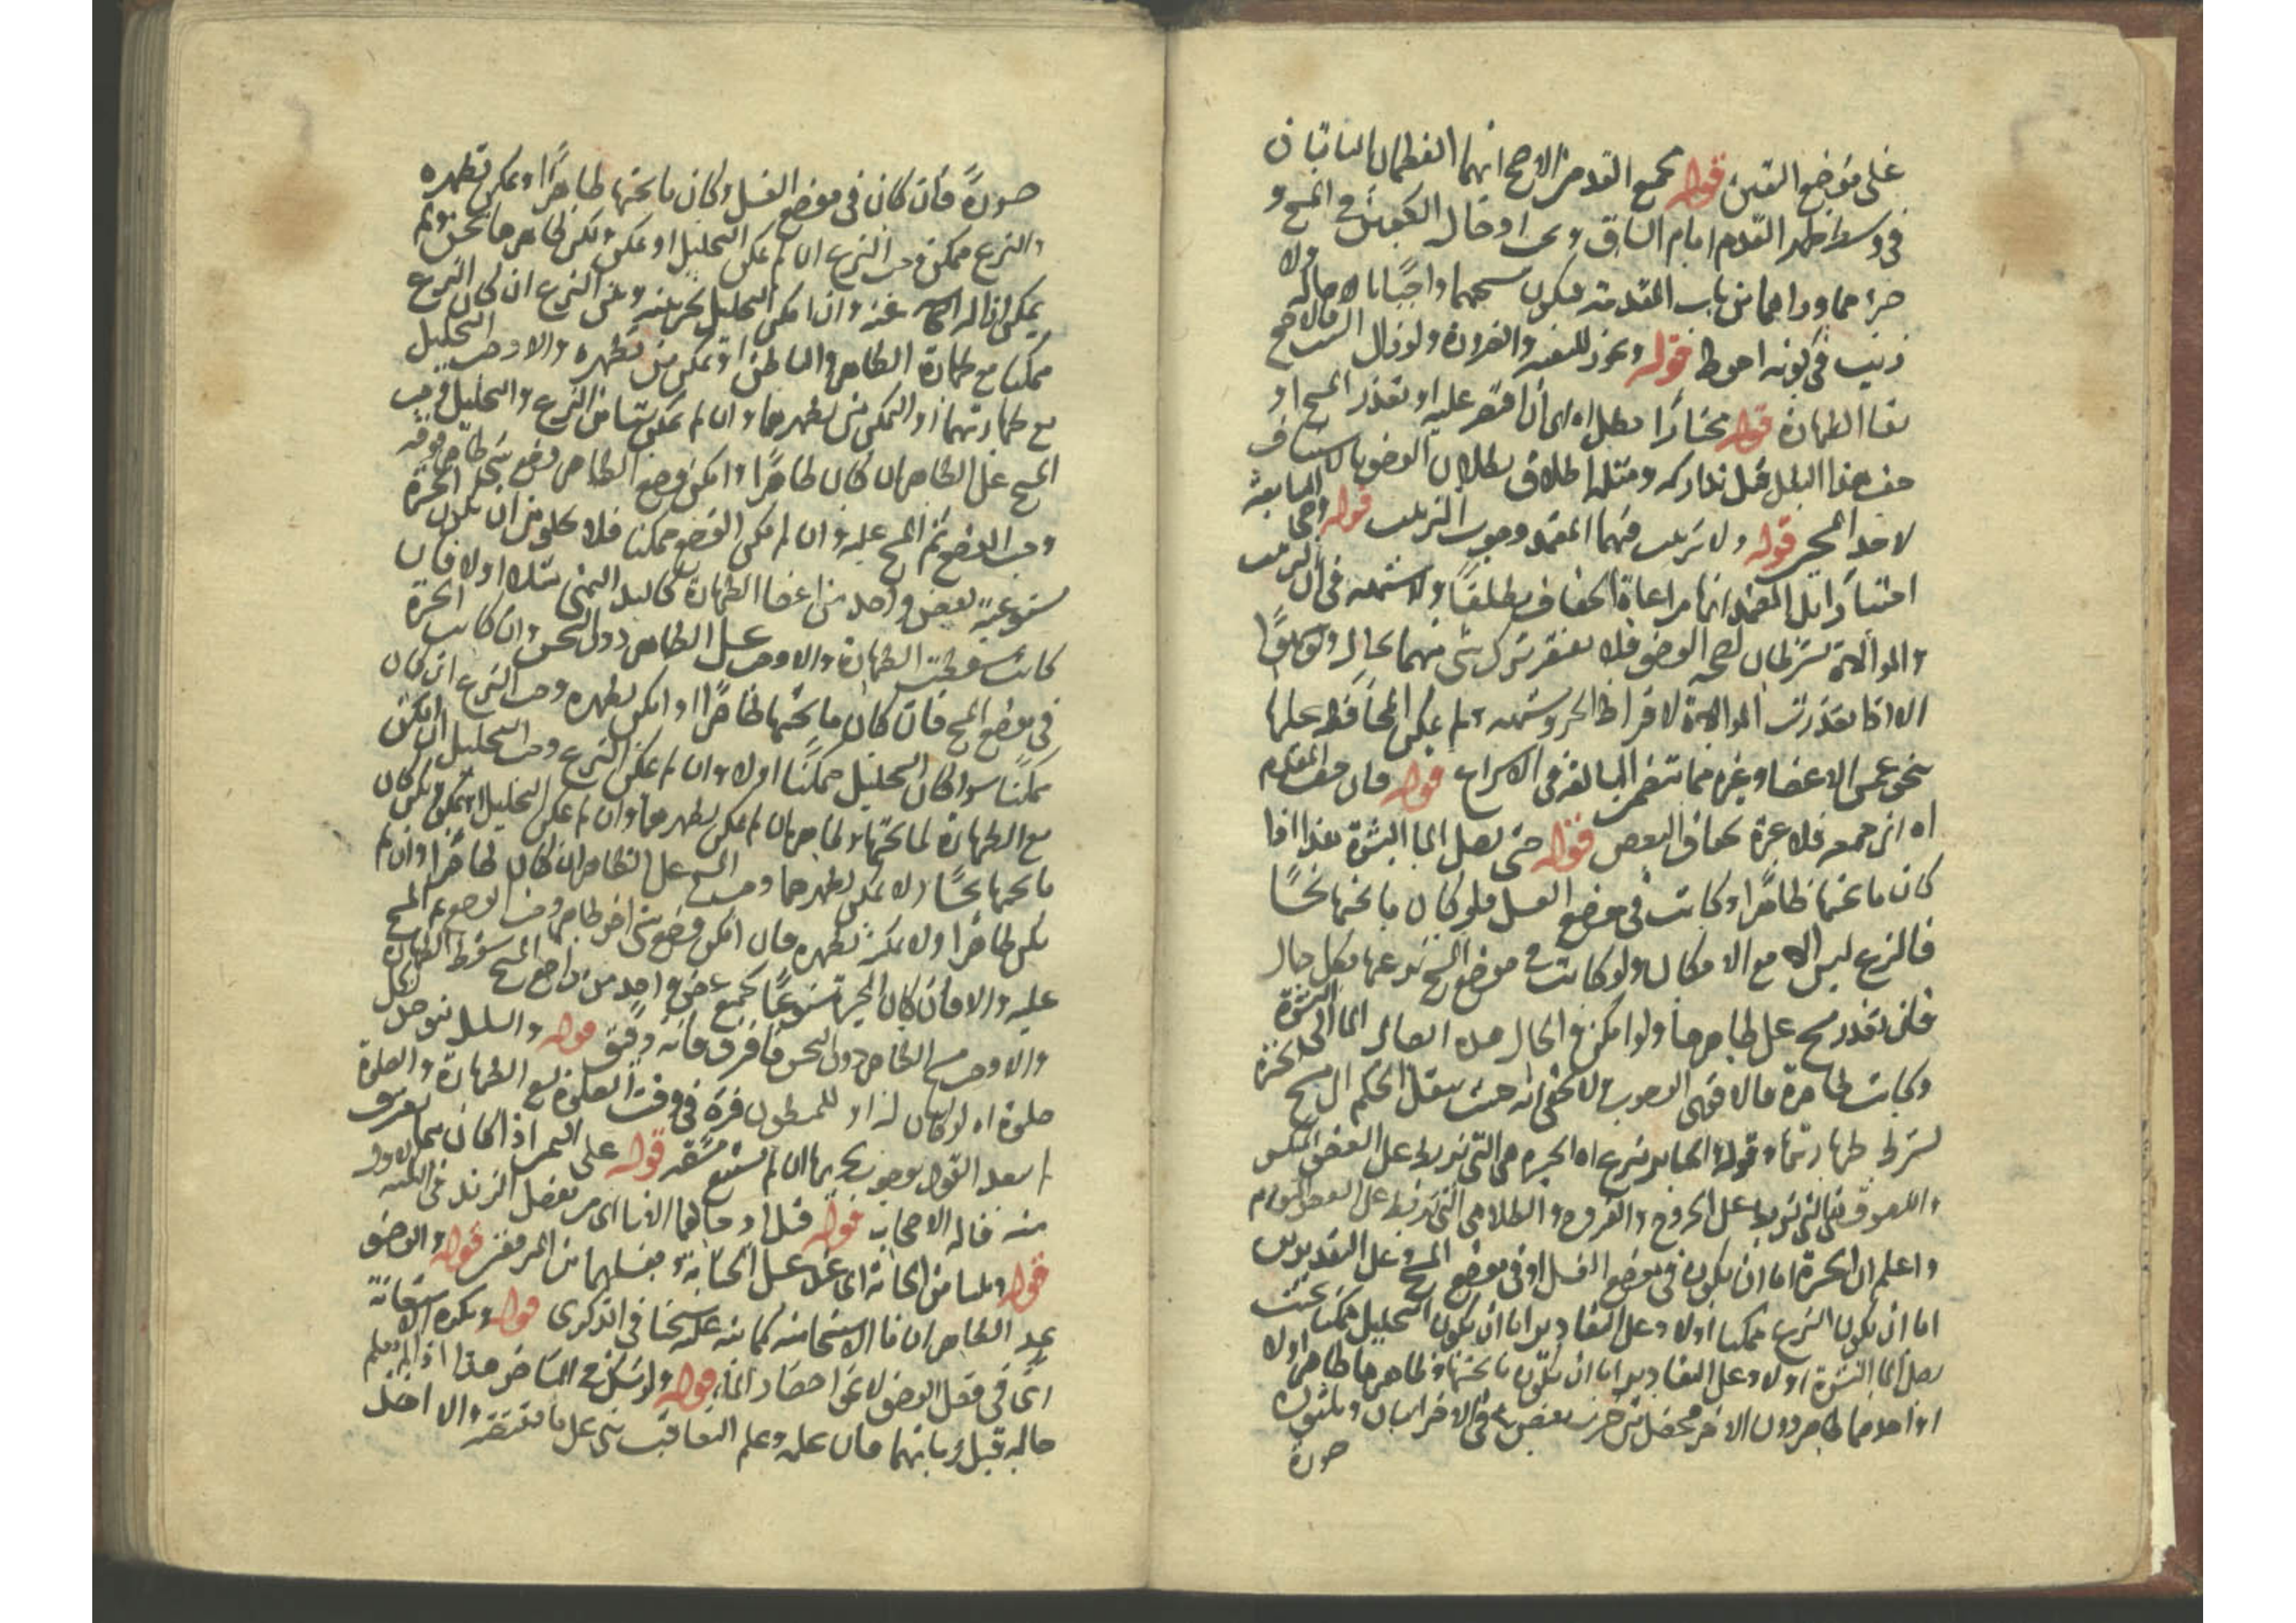 على موضع اليقين قوله مجمع القدمين الاصح انهما العظمان الناتيان
في وسط ظهر القدم امام الساق ويجب ادخال الكعبين في المسح و
جزءهما وراهما من باب المقدمة فيكون مسحهما واجبا لا محالة ولا
ذنيب في كونه احوط قوله ويجوز للتقية والضرورة ولو زال السبب فالاصح
بقا الطهارة قوله مختارا بطل اه اي ان اقتصر عليه او تعذر المسح او
جف هذا البلل قبل تداركه ومثله اطلاق بطلان الوضو بالاستيناف
لا خذ الجديد قوله ولا ترتيب فيهما المعتمد وجوب الترتيب قوله وهي المتابعة
اختيارا بل المعتمد انها مراعاة الجفاف مطلقا ولا شبهة في ان الترتيب
والموالاة شرطان لصحة الوضو فلا يفتقر بترك شي منهما بحال ولو جهلا
الا اذا تعذرت الموالاة لافراط الحر وشبهه ولم يمكن المحافظة عليها
بنحو غمس الاعضا وغيره مما تتضمن المبالغة في الاسراع قوله فان جف المقدم
اه اي جميعه فلا عبرة بجفاف البعض قوله حتى يصل الما البشرة هذا اذا
كان ما تحتها طاهرا وكانت في موضع الغسل فلو كان ما تحتها نجسا
فالنزع ليس الا مع الامكان ولو كانت في موضع المسح نزعها بكل حال
فان تعذر مسح على ظاهرها ولو امكن في الحال هذه ايصال الما الى البشرة
وكانت طاهرة فالاقوى الوجوب ولا يخفى انه حيث ينقل الحكم الى مسح الجبيرة
يشترط طهارتها وقوله الجباير تنزع اه الجبيرة هي التي تربط على العضو المنكسر
واللصوق هي التي تربط على الجروح والقروح والطلا هي التي تربط على العضو المتورم
واعلم ان الجبيرة اما ان يكون في موضع الغسل او في موضع المسح وعلى التقديرين
اما ان يكون النزع ممكنا او لا وعلى التقادير اما ان يكون التحليل ممكنا بحيث
يصل الما البشرة او لا وعلى التقادير اما ان يكون ما تحتها وظاهرها طاهرا او لا
او احدهما طاهر دون الاخر فيحصل من ضرب بعض في الاخر اثنان وثلثون
صورة
صورة فان كان في موضع الغسل وكان ما تحتها طاهرا او يمكن تطهيره
والنزع ممكن وجب النزع ان لم يمكن التحليل او يمكن ويكن ظاهرها نجس ولم
يمكن ازالة النجاسة عنه وان امكن التحليل تخير بينه وبين النزع ان كان النزع
ممكنا مع طهارة الظاهر والباطن او تمكن من تطهيره والا وجب التحليل
مع طهارتهما او التمكن من تطهيرهما وان لم يمكن شيئا من النزع والتحليل وجب
المسح على الظاهر ان كان طاهرا او امكن وضع الظاهر وضع شي طاهر فوقه
وجب الوضع ثم المسح عليه وان لم يمكن الوضع ممكنا فلا يخلو من ان يكون الجبيرة
مستوعبة بعض واحد من اعضا الطهارة كاليد اليمنى مثلا او لا فان
كانت سقطت الطهارة والا وجب غسل الظاهر دون النجس وان كانت الجبيرة
في موضع المسح فان كان ما تحتها طاهرا او امكن تطهيره وجب النزع ان كان
ممكنا سوا كان التحليل ممكنا او لا وان لم يمكن النزع وجب التحليل ان امكن
مع الطهارة لما تحتها ولظاهرها ان لم يمكن تطهيرهما وان لم يمكن التحليل او يمكن ويكن كان
ما تحتها نجسا ولا يمكن تطهيرهما وجب المسح على الظاهر ان كان طاهرا وان لم
يكن طاهرا ولا يمكن تطهيره فان امكن وضع شي اخر طاهر وجب الوضع ثم المسح
عليه والا فان كان الجبيرة مستوعبا لجميع عضو واحد من مواضع المسح سقط الطهارة
والا وجب مسح الظاهر دون النجس فاعرف فانه دقيق قوله والسلس يتوضا لكل
صلوة اه لو كان له او للمبطون فترة في وقت الصلوة تسع الطهارة والصلوة
لم يبعد القول بوجوب تحريها ان لم تستتبع مشقة قوله على اليمين اذا كان مما يغترف
منه قاله الاصحاب قوله قبل ادخالهما الانا اي من مفصل الزند في الثلثة الاول
قوله وثلثا من الجنابة اي عند غسل الجنابة ويغسلهما من المرفقين قوله والوضو
بمد الظاهر ان ما الاستنجا منه كما نبه عليه شيخنا في الذكرى قوله ويكره الاستعانة
اي في فعل الوضو لا نحو احضار الما قوله ولو شك في المتاخر هذا اذا لم يعلم
حاله قبل زمانهما فان علمه وعلم التعاقب بنى على ما يقتضيه والا اخذ